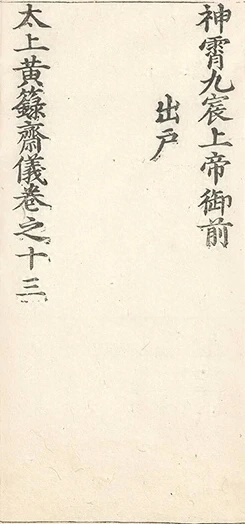 神霄九宸上帝御前
出戶
太上黃籙齋儀卷之十三